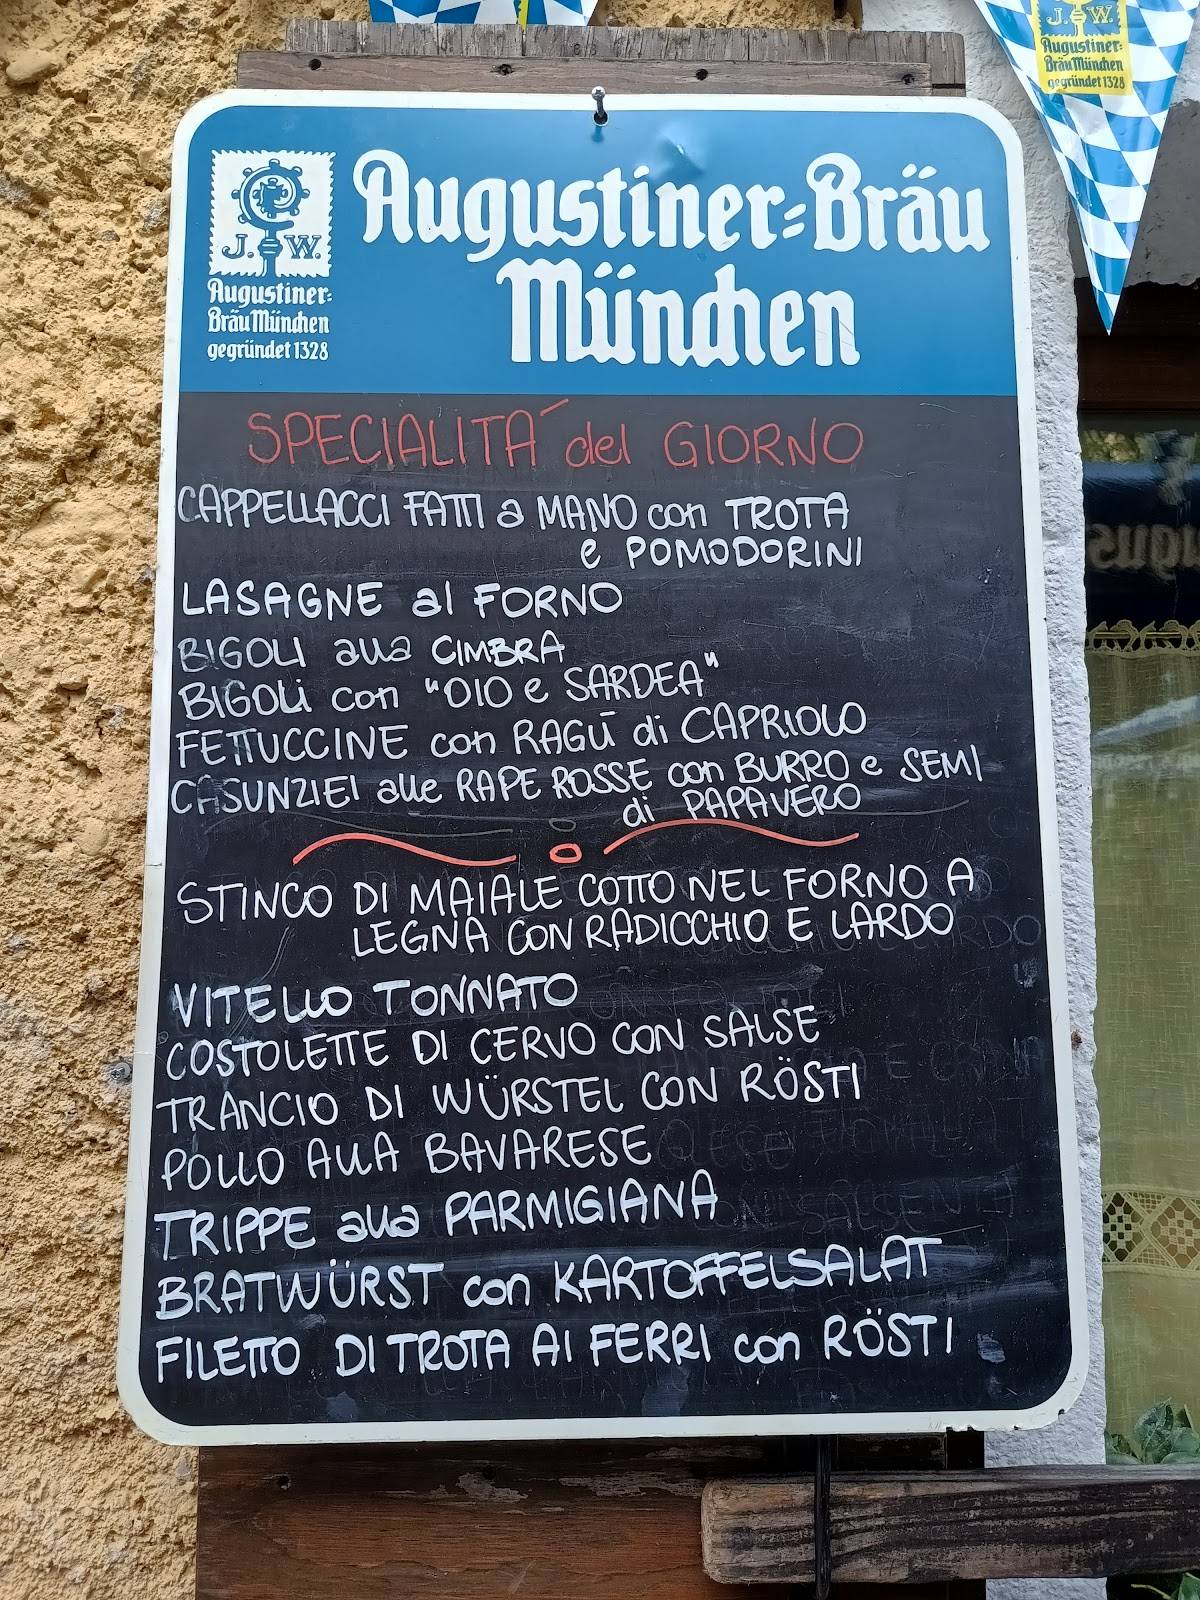 J. W.
Augustiner-
Bräu München
gegründet 1328
J. W.
Augustiner-
Bräu München
gegründet 1328
Augustiner-Bräu
München
SPECIALITÁ del GIORNO
CAPPELLACCI FATTI a MANO con TROTA
e POMODORINI
LASAGNE al FORNO
BIGOLI alla CIMBRA
BIGOLI con "OIO e SARDEA"
FETTUCCINE con RAGÚ di CAPRIOLO
CASUNZIEI alle RAPE ROSSE con BURRO e SEMI
di PAPAVERO
STINCO DI MAIALE COTTO NEL FORNO A
LEGNA CON RADICCHIO E LARDO
VITELLO TONNATO
COSTOLETTE DI CERVO CON SALSE
TRANCIO DI WÜRSTEL CON RÖSTI
POLLO ALLA BAVARESE
TRIPPE alla PARMIGIANA
BRATWÜRST con KARTOFFELSALAT
FILETTO DI TROTA AI FERRI con RÖSTI